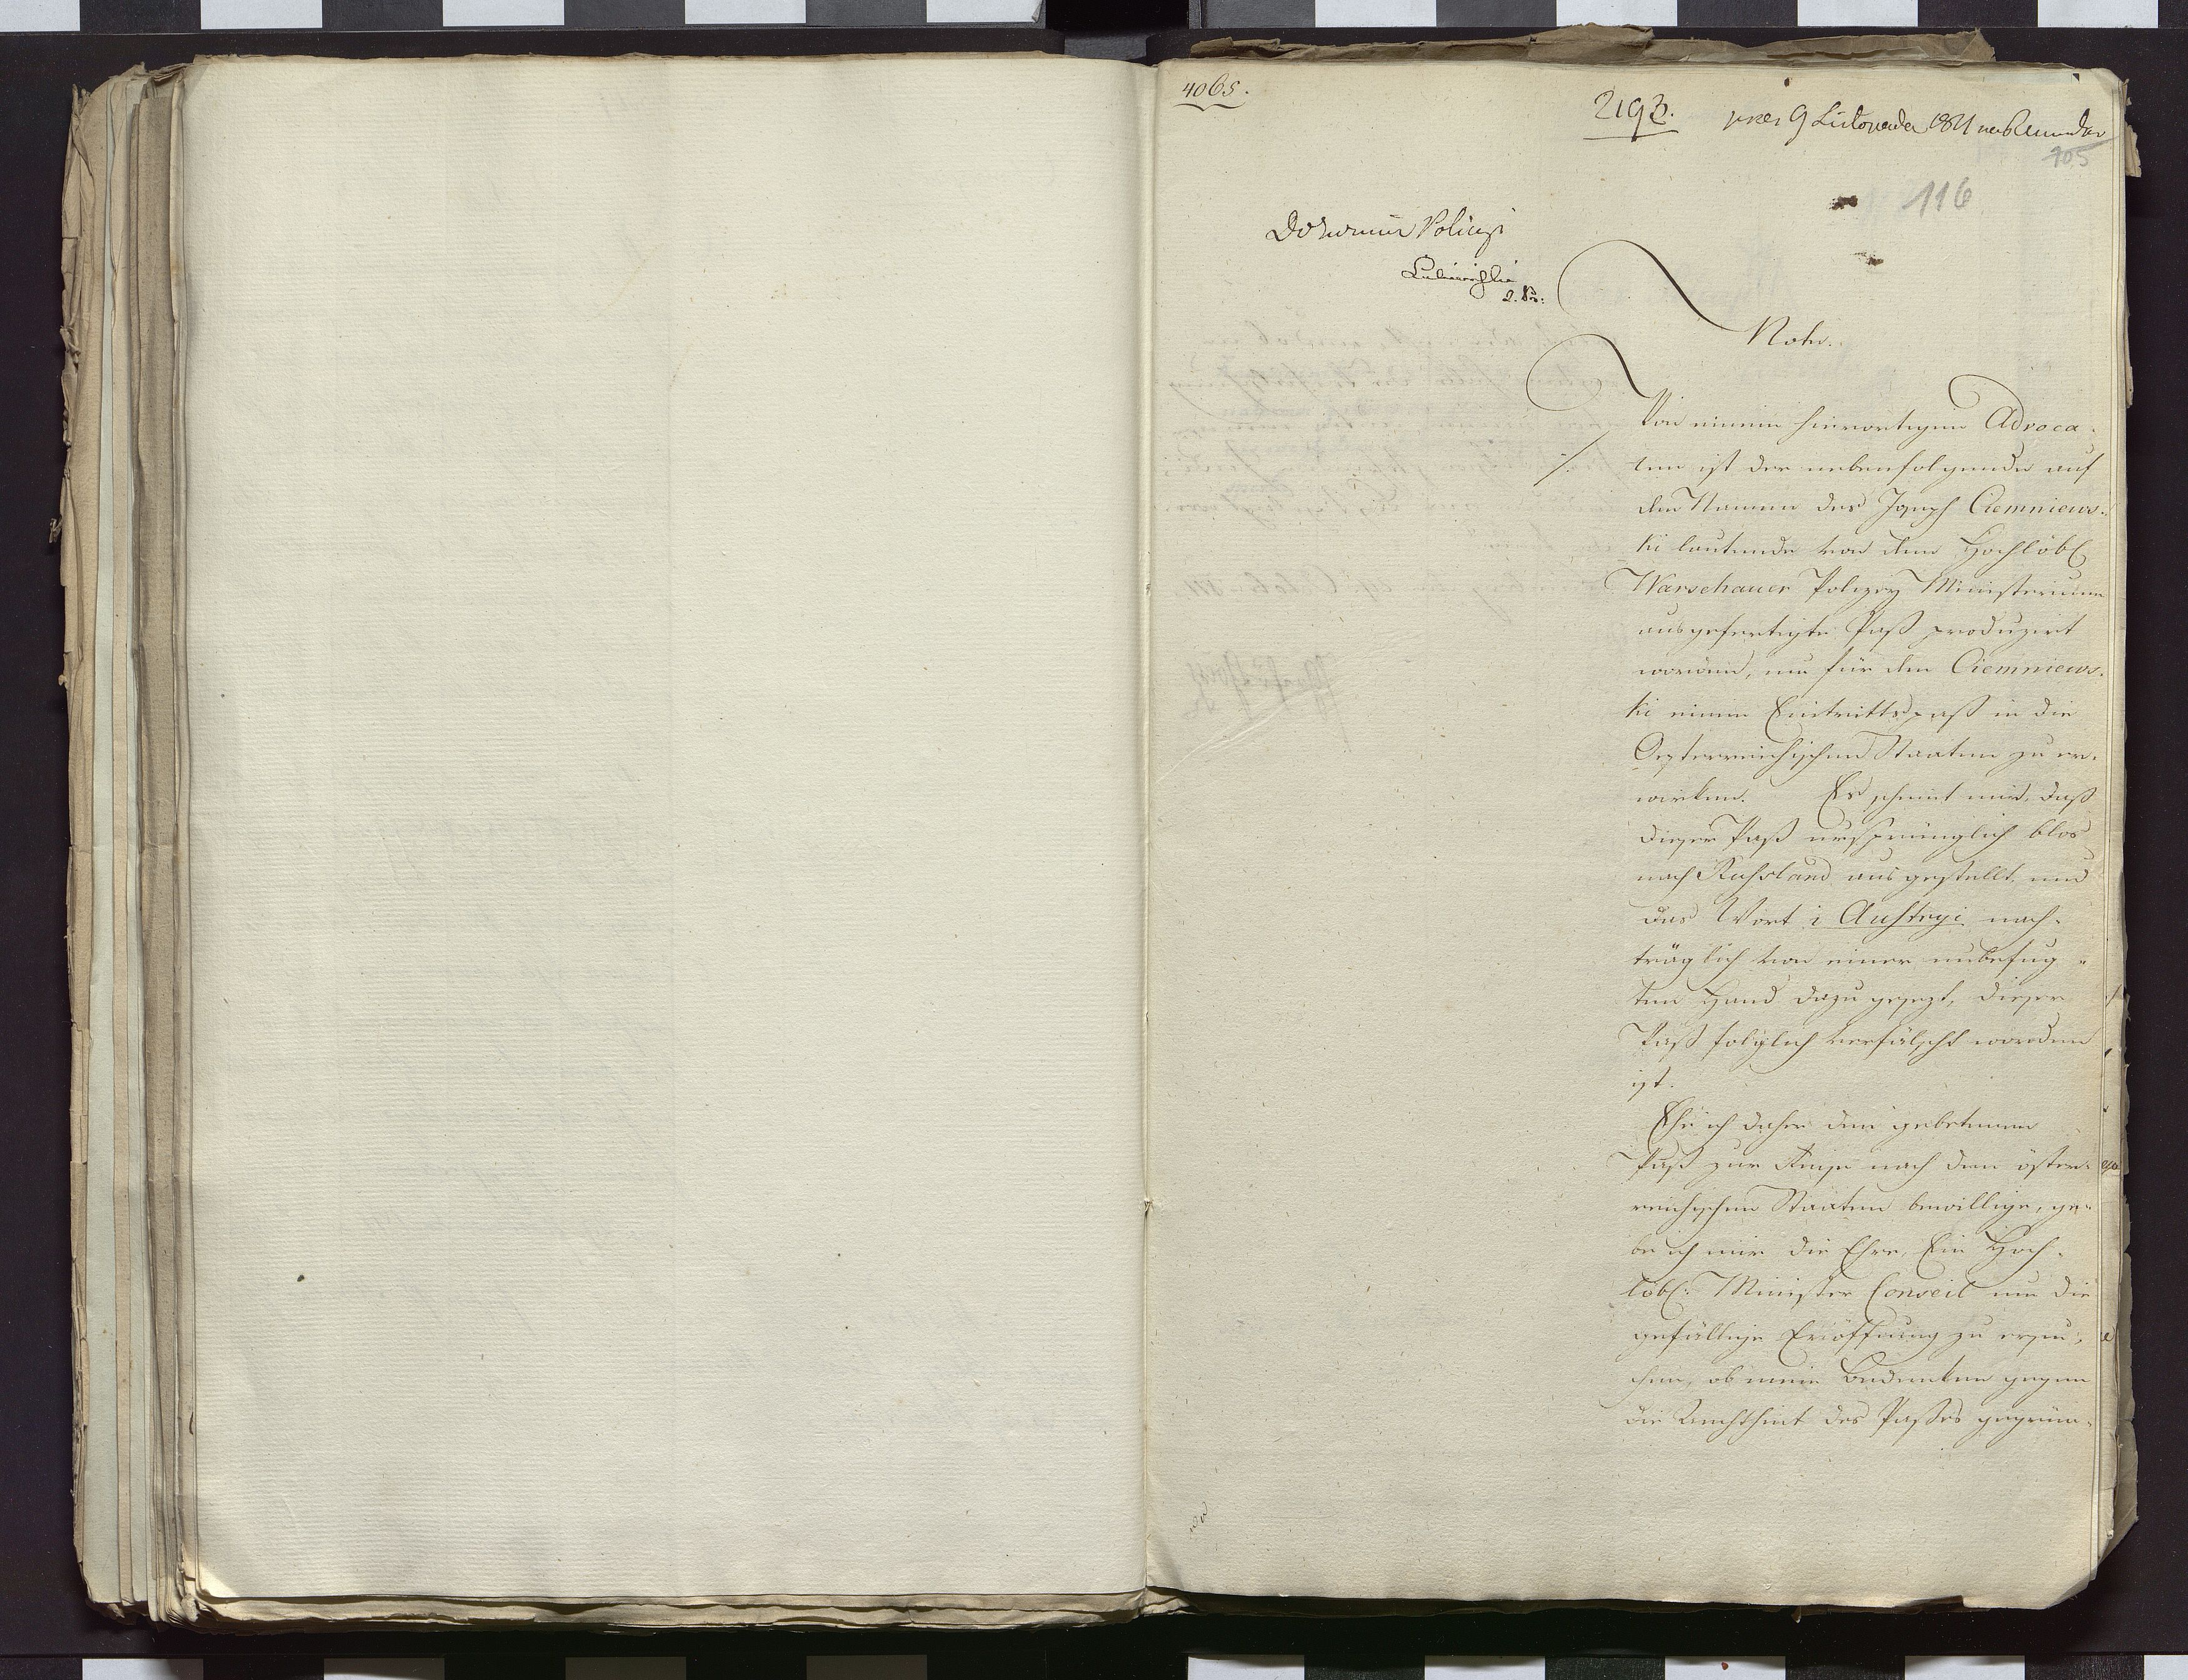 4065.
2193. pres 9 Listopada 1811
705
116
Policyi
Note.
Von einem hierortigen Advoca-
ten ist der nebenfolgende auf
den Namen des Joseph Ciemniews-
ki lautende von dem Hochlöbl
Warschauer Polizey Ministerium
ausgefertigte Paß produzirt
worden, um für den Ciemniews-
ki einen Eintrittspaß in die
Oesterreichischen Staaten zu er-
wirken. Es scheint mir, daß
dieser Paß ursprünglich blos
nach Russland ausgestellt, und
das Wort i Austryi nach-
träglich von einer unbefug-
ten Hand dazu gesezt, dieser
Paß folglich verfälscht worden
ist.
Ehe ich daher den gebetenen
Paß zur Reise nach den öster-
reichischen Staaten bewillige, ge-
be ich mir die Ehre, Ein Hoch-
löbl: Minister Conseil um die
gefällige Eröffnung zu ersu-
chen, ob mein Bedenken gegen
die Aechtheit des Passes gegrün-